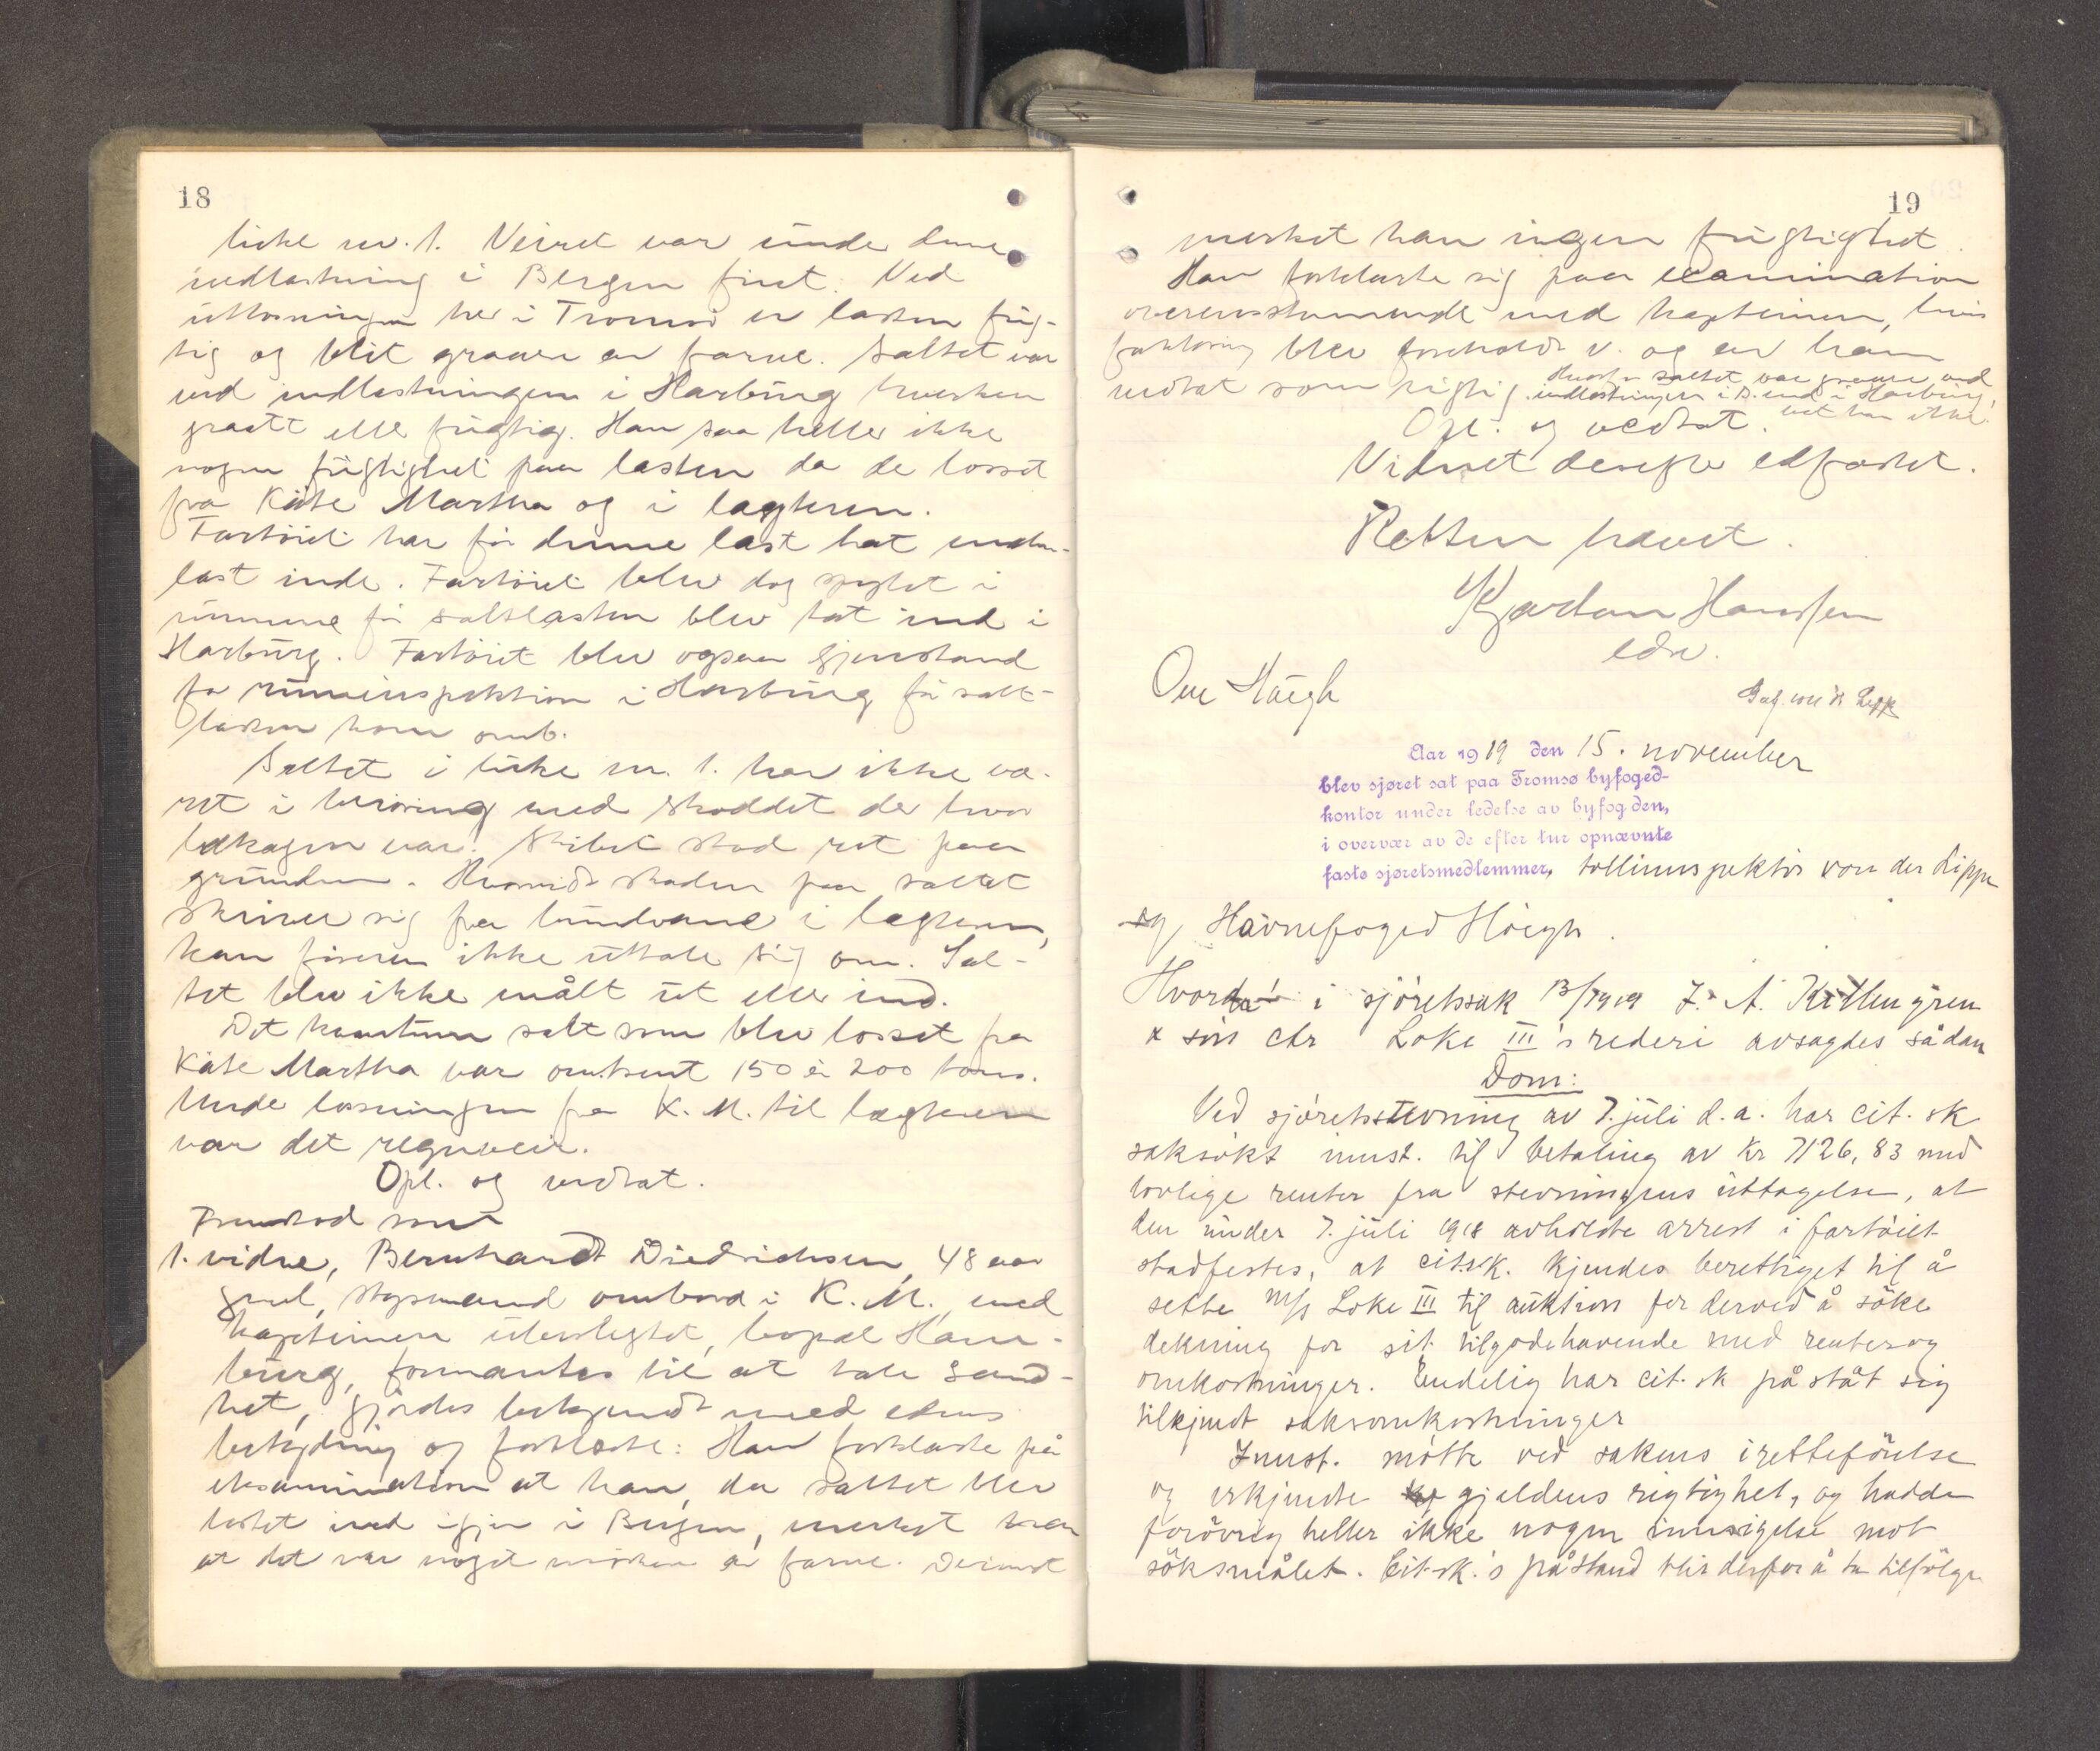 18
luke nr. 1. Veiret var under denne
indlastning i Bergen fint. Ved
utlosningen her i Tromsø er lasten fug-
tig og blit graaere av farve. Saltet var
ved indlastningen i Harburg hverken
graatt eller fugtig. Han saa heller ikke
nogen fugtighet paa lasten da de losset
fra Käte Martha og i lægteren.
Fartöiet har för denne last hat
last inde. Fartöiet blev dog spylet i
rummene för saltlasten blev tat ind i
Harburg. Fartöiet blev ogsaa gjenstand
for ruminspektion i Harburg för salt-
lasten kom omb.
Saltet i luke nr. 1. har ikke væ-
ret i beröring med skoddet der hvor
lækagen var. Skibet stod ret paa
grunden. Hvorvidt skaden paa saltet
skriver sig fra bundvand i lægteren,
kan föreren ikke uttale sig om. Sal-
tet blev ikke målt ut eller ind.
Det kvantum salt som blev losset fra
Käte Martha var omtrent 150 à 200 tons.
Under losningen fra K. M. til lægteren
var det regnveir.
Opl. og vedtat.
Fremstod som
1. vidne, Bernhardt Diedrichsen, 48 aar
gml, styrmand ombord i K. M., med
kapteinen ubeslegtet, bopæl Ham-
burg, formantes til at tale sand-
het, gjördes bekjendt med edens
betydning og forklarte: Han forklarte på
eksamination at han, da saltet blev
lastet ind igjen i Bergen, merket han
at det var noget mörkere av farve. Derimot
19
merket han ingen fugtighet.
Han forklarte sig paa examination
overensstemmende med kapteinen, hvis
forklaring blev foreholdt v. og av ham
vedtat som rigtig. Hvorfor saltet var graaere ved
indlastningen i B. end i Harburg,
vet han ikke.
Opl. og vedtat.
Vidnet derefter edfæstet.
Retten hævet.
Kjartan Hanssen
edsv.
Ove Höegh
Gulf. von d. Lippe
Aar 1919 den 15. november
blev sjøret sat paa Tromsø byfoged-
kontor under ledelse av byfogden,
i overvær av de efter tur opnævnte
faste sjøretsmedlemmer, tollinspektör von der Lippe
og Havnefoged Höegh.
Hvorda i sjöretssak 13/1919 J. A. Killengren
& sön ctr Loke III's rederi avsagdes sådan
Dom:
Ved sjöretsstevning av 7. juli d.a. har cit. sk
saksökt innst. til betaling av Kr 7126,83 med
lovlige renter fra stevningens uttagelse, at
den under 7. juli 1918 avholdte arrest i fartöiet
stadfestes, at cit.sk. kjendes berettiget til å
sette M/S Loke III til auktion for derved å söke
dekning for sit tilgodehavende med renter og
omkostninger. Endelig har cit. sk påståt sig
tilkjendt saksomkostninger
Innst. mötte ved sakens iretteförelse
og erkjendte gjeldens rigtighet, og hadde
forövrig heller ikke nogen innsigelse mot
söksmålet. Cit.sk.'s påstand blir derfor å ta tilfölge